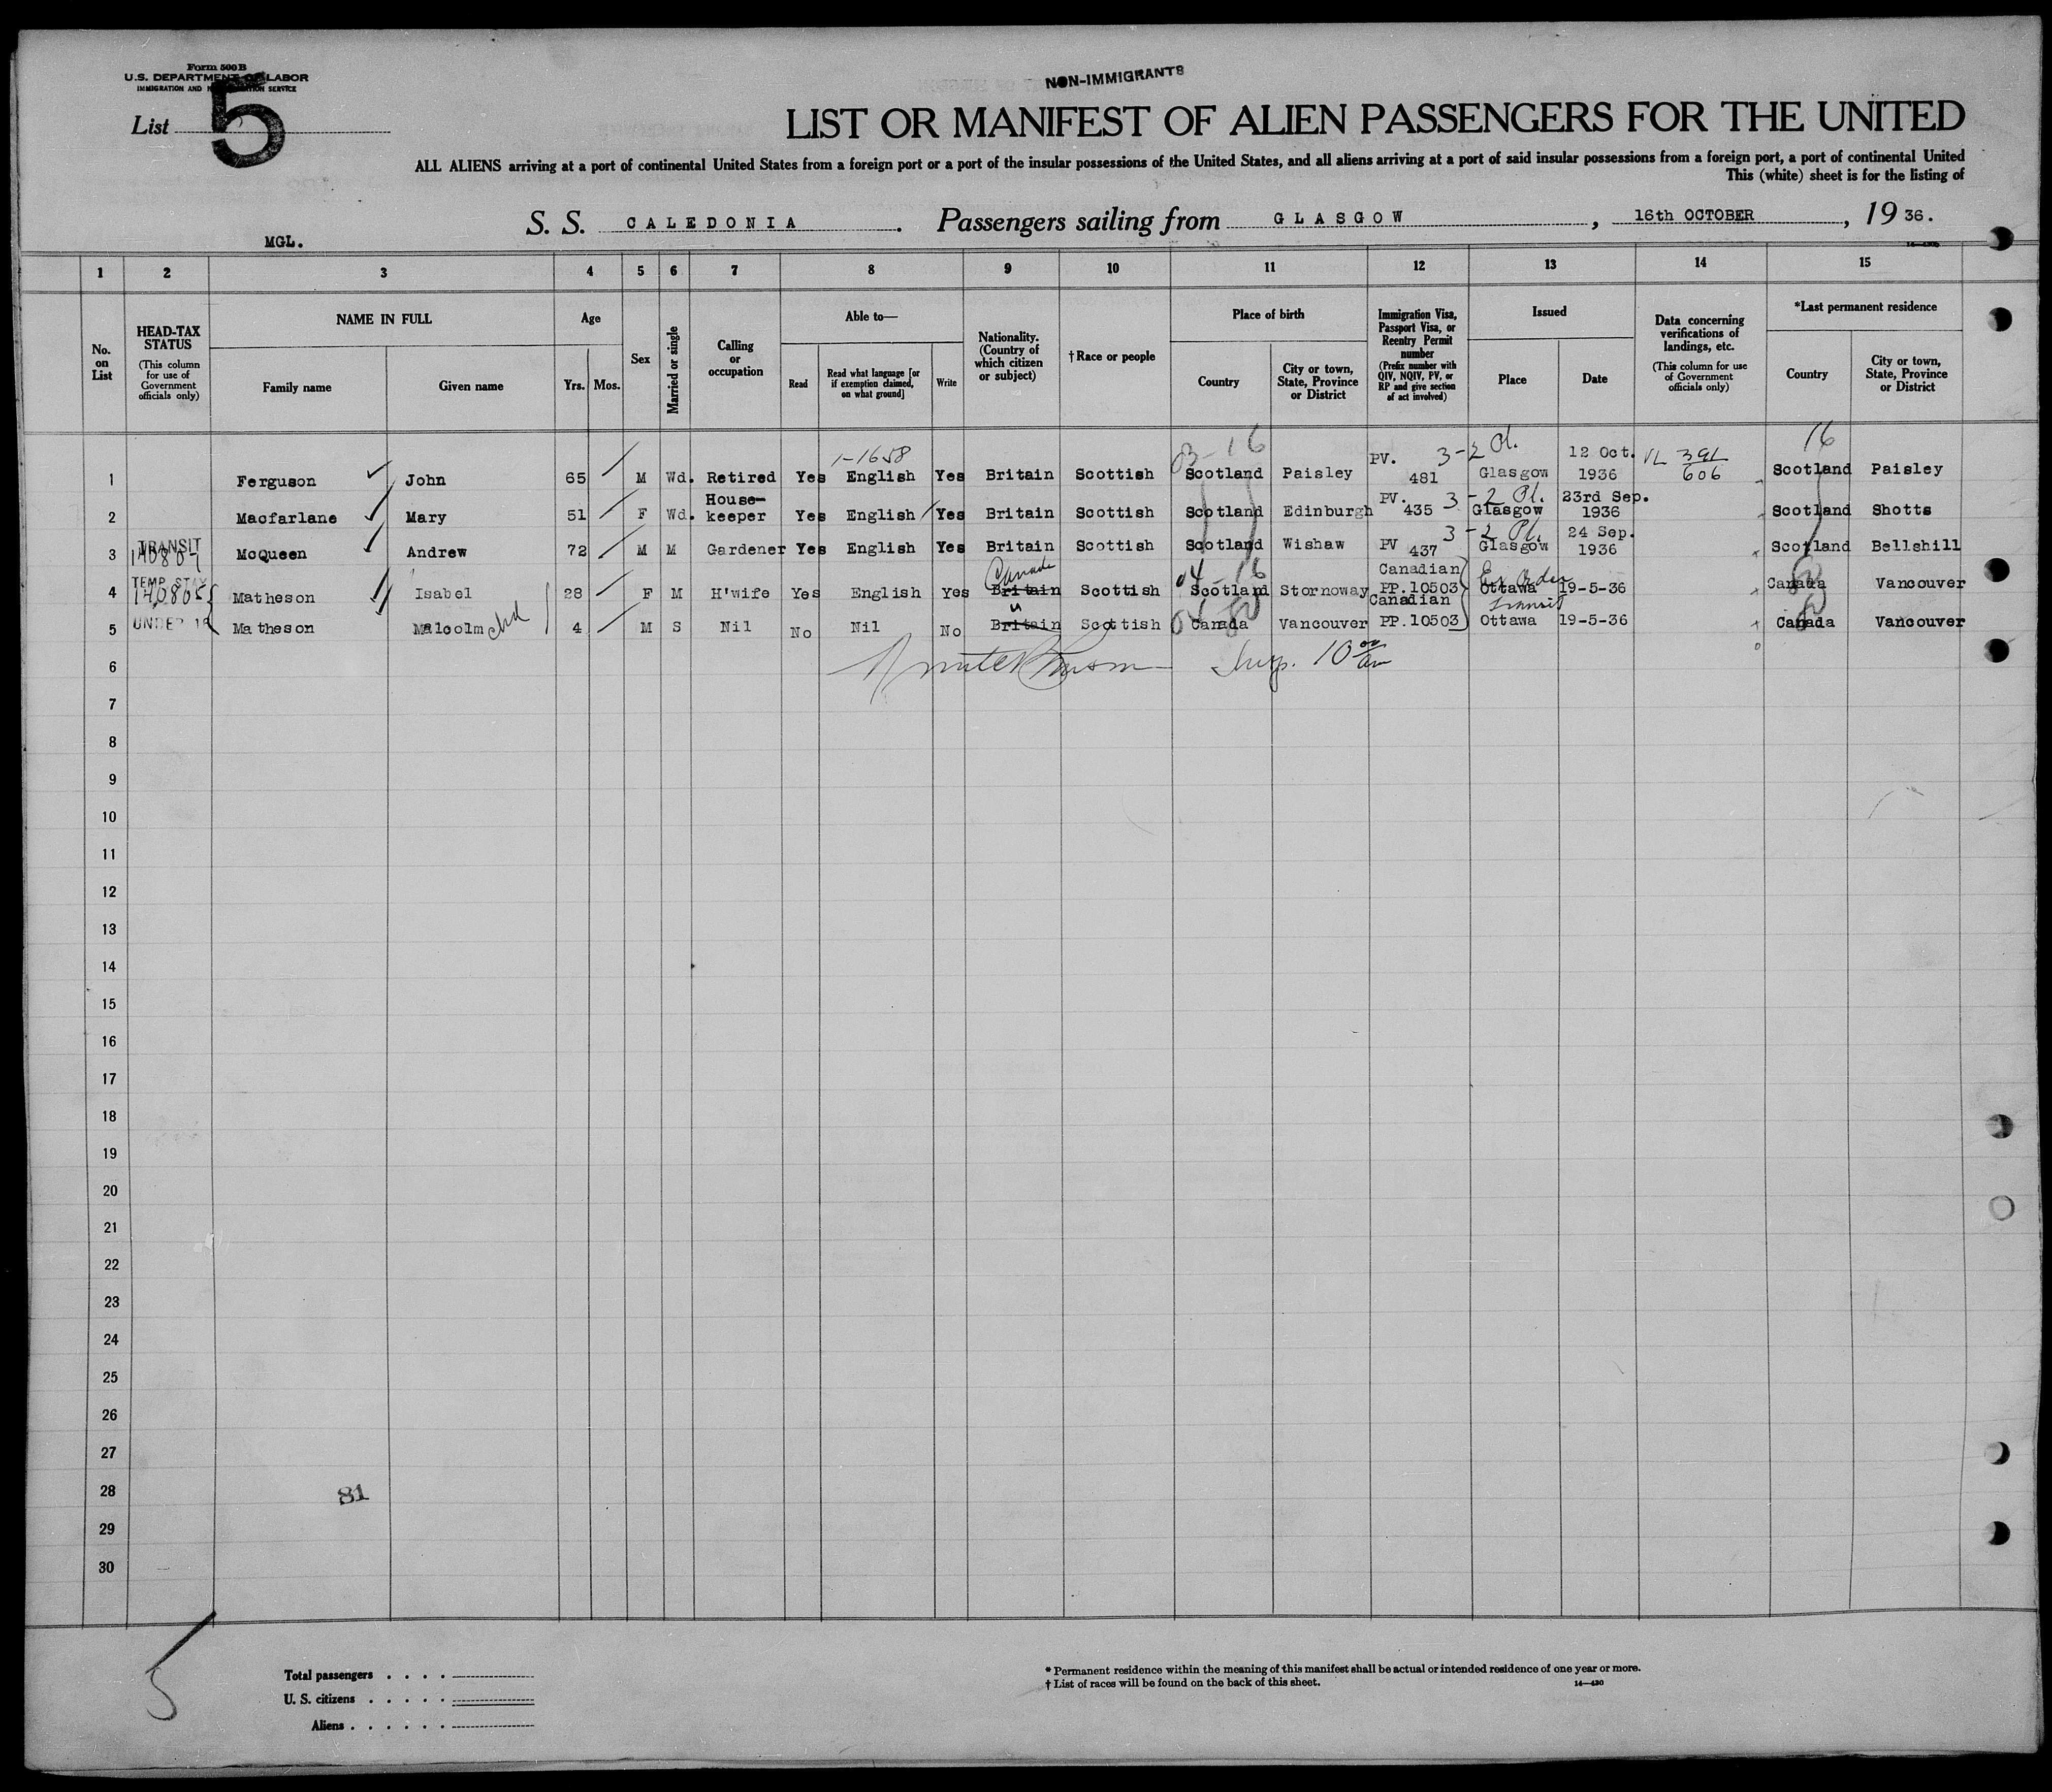 Form 500 B
U.S. DEPARTMENT OF LABOR
IMMIGRATION AND NATURALIZATION SERVICE
List 5
NON-IMMIGRANTS
LIST OR MANIFEST OF ALIEN PASSENGERS FOR THE UNITED
ALL ALIENS arriving at a port of continental United States from a foreign port or a port of the insular possessions of the United States, and all aliens arriving at a port of said insular possessions from a foreign port, a port of continental United
This (white) sheet is for the listing of
MGL.
S. S. CALEDONIA. Passengers sailing from GLASGOW, 16th OCTOBER, 19 36.
1 2 3 4 5 6 7 8 9 10 11 12 13 14 15
No. on List
HEAD-TAX STATUS
(This column for use of Government officials only)
NAME IN FULL
Family name
Given name
Age
Yrs. Mos.
Sex
Married or single
Calling or occupation
Able to—
Read
Read what language [or if exemption claimed, on what ground]
Write
Nationality. (Country of which citizen or subject)
† Race or people
Place of birth
Country
City or town, State, Province or District
Immigration Visa, Passport Visa, or Reentry Permit number
(Prefix number with QIV, NQIV, PV, or RP and give section of act involved)
Issued
Place
Date
Data concerning verifications of landings, etc.
(This column for use of Government officials only)
*Last permanent residence
Country
City or town, State, Province or District
1-1658 03-16 3-2 16
1 Ferguson John 65 M Wd. Retired Yes English Yes Britain Scottish Scotland Paisley PV. 481 Glasgow 12 Oct. 1936 VL 391/606 Scotland Paisley
2 Macfarlane Mary 51 F Wd. House-keeper Yes English Yes Britain Scottish Scotland Edinburgh PV. 435 3-2 Glasgow 23rd Sep. 1936 Scotland Shotts
3 TRANSIT 140804 McQueen Andrew 72 M M Gardener Yes English Yes Britain Scottish Scotland Wishaw PV 437 3-2 Glasgow 24 Sep. 1936 Scotland Bellshill
4 TEMP STAY 140805 Matheson Isabel 28 F M H'wife Yes English Yes Britain Canada Scottish 04-16 Scotland Stornoway Canadian PP.10503 Ottawa 19-5-36 Canada Vancouver
5 UNDER 16 Matheson Malcolm chd 4 M S Nil No Nil No Britain " Scottish Canada Vancouver Canadian PP.10503 transit Ottawa 19-5-36 Canada Vancouver
6 Insp. 10 00 am
7
8
9
10
11
12
13
14
15
16
17
18
19
20
21
22
23
24
25
26
27
28 81
29
30
5
Total passengers . . . .
U. S. citizens . . . . .
Aliens . . . . . .
* Permanent residence within the meaning of this manifest shall be actual or intended residence of one year or more.
† List of races will be found on the back of this sheet.
14—430